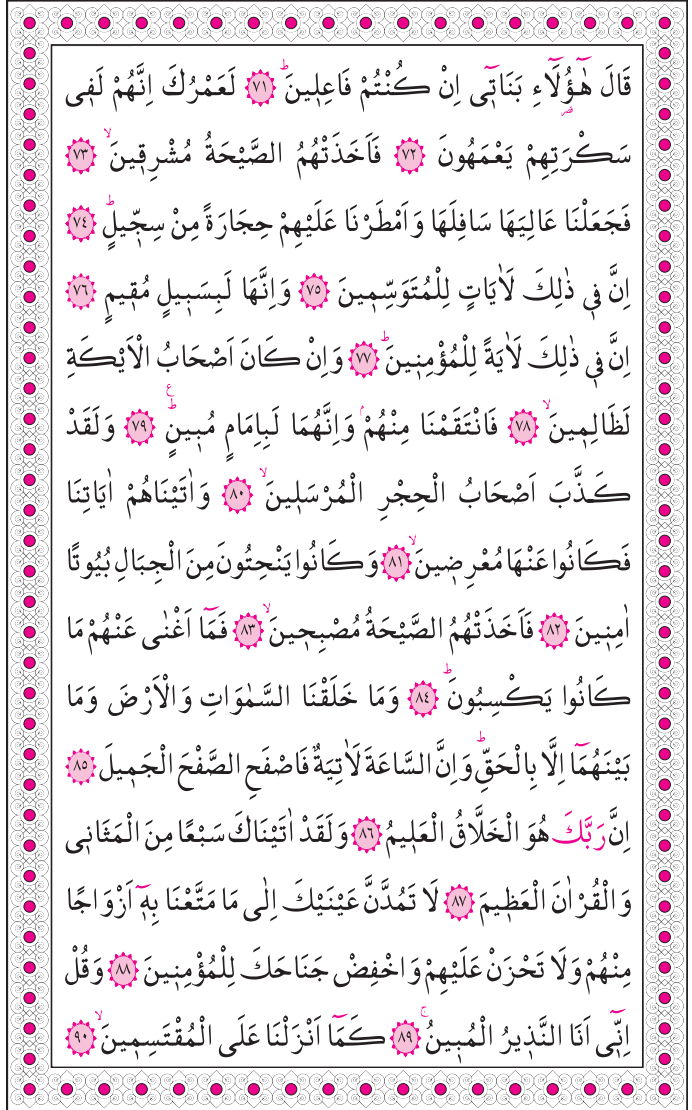 قَالَ هٰٓؤُ۬لَٓاءِ بَنَاتٖٓي اِنْ كُنْتُمْ فَاعِلٖينَۜ ﴿٧١﴾ لَعَمْرُكَ اِنَّهُمْ لَفٖي
سَكْرَتِهِمْ يَعْمَهُونَ ﴿٧٢﴾ فَاَخَذَتْهُمُ الصَّيْحَةُ مُشْرِقٖينَۙ ﴿٧٣﴾
فَجَعَلْنَا عَالِيَهَا سَافِلَهَا وَاَمْطَرْنَا عَلَيْهِمْ حِجَارَةً مِنْ سِجّٖيلٍۜ ﴿٧٤﴾
اِنَّ فٖي ذٰلِكَ لَاٰيَاتٍ لِلْمُتَوَسِّمٖينَ ﴿٧٥﴾ وَاِنَّهَا لَبِسَبٖيلٍ مُقٖيمٍ ﴿٧٦﴾
اِنَّ فٖي ذٰلِكَ لَاٰيَةً لِلْمُؤْمِنٖينَۜ ﴿٧٧﴾ وَاِنْ كَانَ اَصْحَابُ الْاَيْكَةِ
لَظَالِمٖينَۙ ﴿٧٨﴾ فَانْتَقَمْنَا مِنْهُمْۢ وَاِنَّهُمَا لَبِاِمَامٍ مُبٖينٍۜ ع ﴿٧٩﴾ وَلَقَدْ
كَذَّبَ اَصْحَابُ الْحِجْرِ الْمُرْسَلٖينَۙ ﴿٨٠﴾ وَاٰتَيْنَاهُمْ اٰيَاتِنَا
فَكَانُوا عَنْهَا مُعْرِضٖينَۙ ﴿٨١﴾ وَكَانُوا يَنْحِتُونَ مِنَ الْجِبَالِ بُيُوتًا
اٰمِنٖينَ ﴿٨٢﴾ فَاَخَذَتْهُمُ الصَّيْحَةُ مُصْبِحٖينَۙ ﴿٨٣﴾ فَمَٓا اَغْنٰى عَنْهُمْ مَا
كَانُوا يَكْسِبُونَۜ ﴿٨٤﴾ وَمَا خَلَقْنَا السَّمٰوَاتِ وَالْاَرْضَ وَمَا
بَيْنَهُمَٓا اِلَّا بِالْحَقِّۜ وَاِنَّ السَّاعَةَ لَاٰتِيَةٌ فَاصْفَحِ الصَّفْحَ الْجَمٖيلَ ﴿٨٥﴾
اِنَّ رَبَّكَ هُوَ الْخَلَّاقُ الْعَلٖيمُ ﴿٨٦﴾ وَلَقَدْ اٰتَيْنَاكَ سَبْعًا مِنَ الْمَثَانٖي
وَالْقُرْاٰنَ الْعَظٖيمَ ﴿٨٧﴾ لَا تَمُدَّنَّ عَيْنَيْكَ اِلٰى مَا مَتَّعْنَا بِهٖٓ اَزْوَاجًا
مِنْهُمْ وَلَا تَحْزَنْ عَلَيْهِمْ وَاخْفِضْ جَنَاحَكَ لِلْمُؤْمِنٖينَ ﴿٨٨﴾ وَقُلْ
اِنّٖٓي اَنَا النَّذٖيرُ الْمُبٖينُۚ ﴿٨٩﴾ كَمَٓا اَنْزَلْنَا عَلَى الْمُقْتَسِمٖينَۙ ﴿٩٠﴾